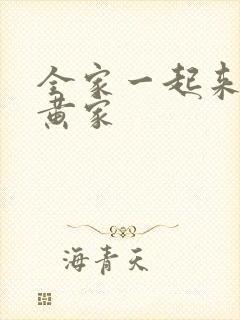 全家一起来
黄家
海青天